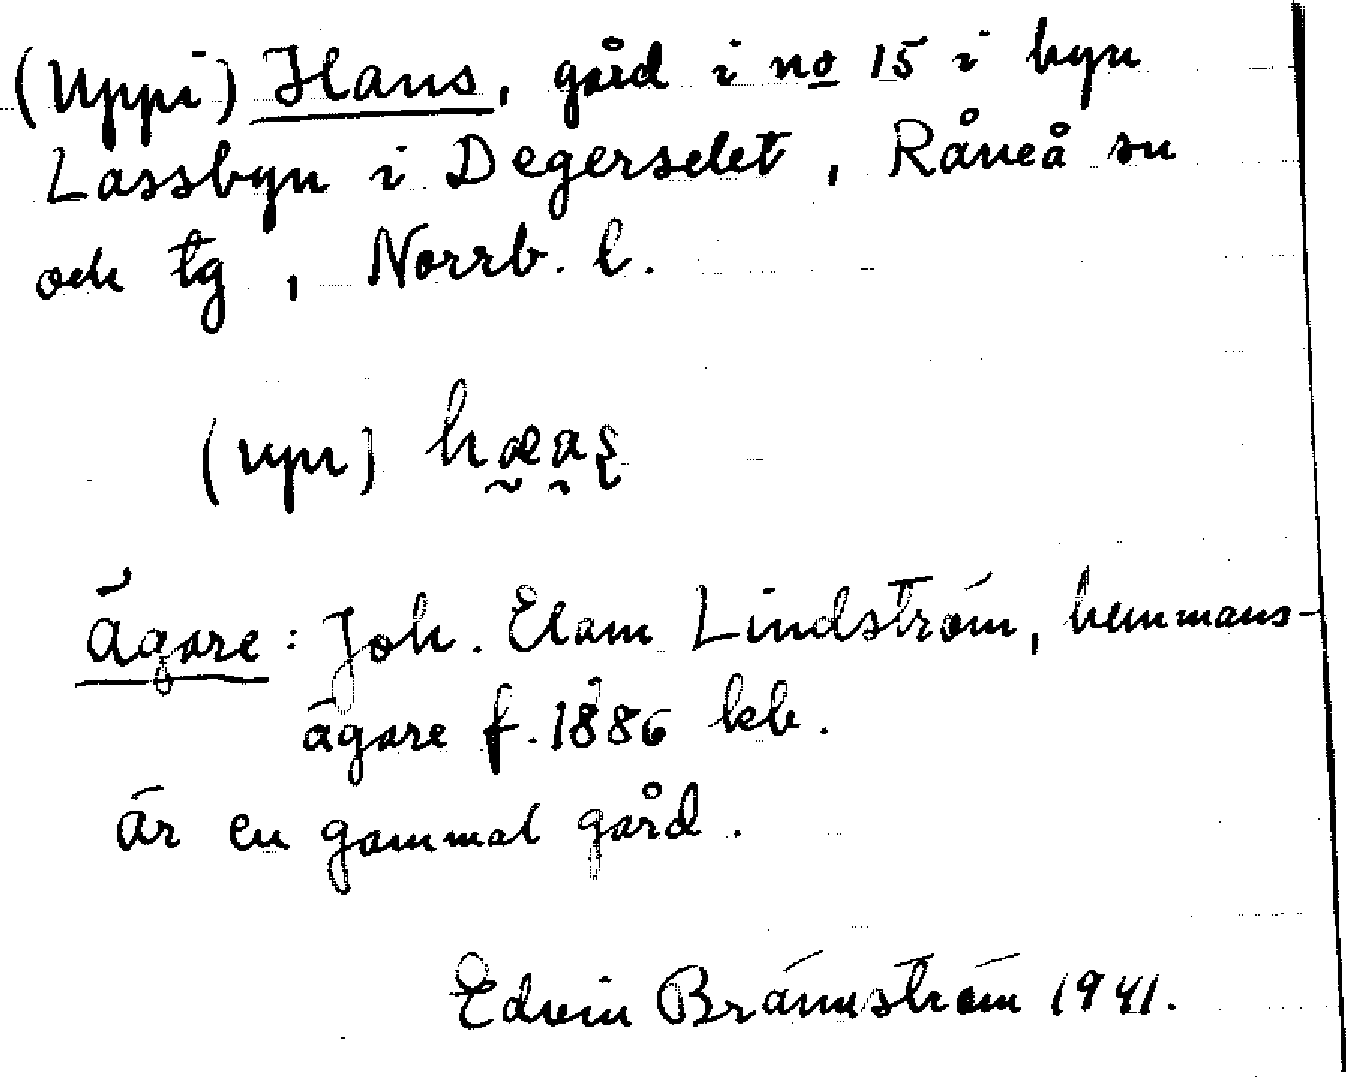 (Uppi) Hans, gård i no 15 i byn
Lassbyn i Degerselet, Råneå sn
och tg, Norrb. l.
(upi)
Ägare: Joh. Elam Lindström, hemmans-
ägare f. 1886 kb.
är en gammal gård.
Edvin Brännström 1941.